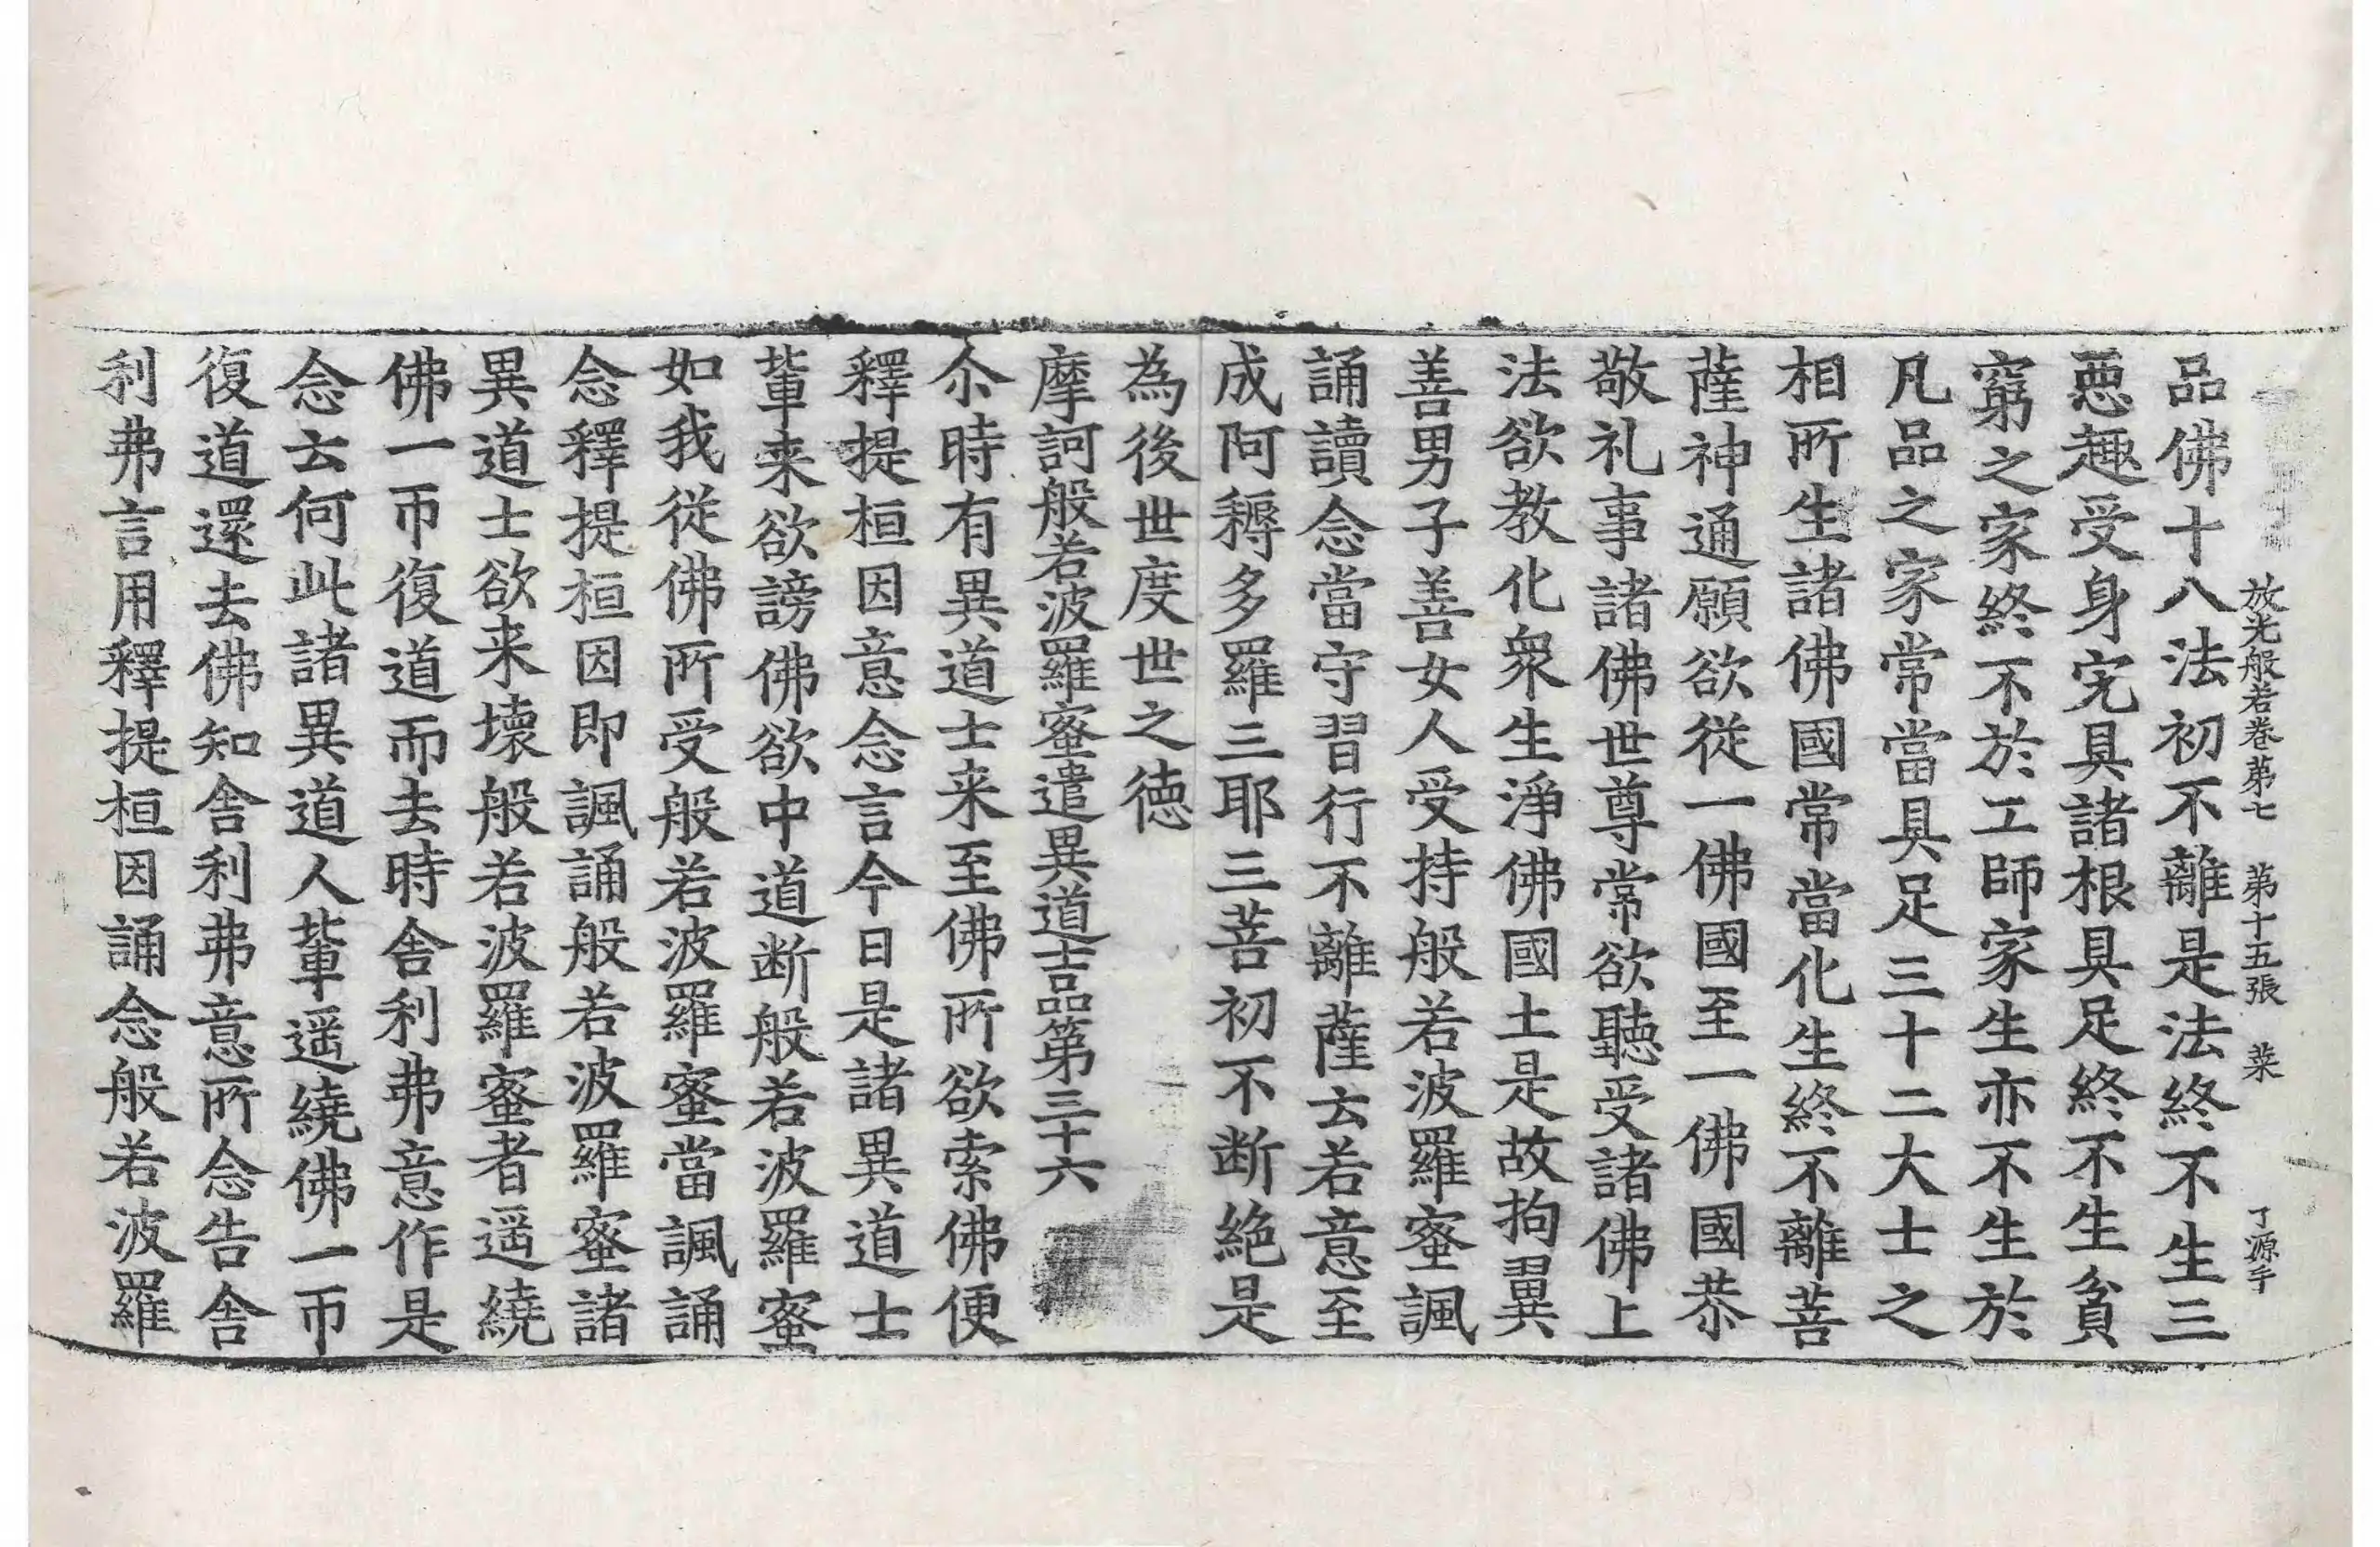 放光般若卷第七 第十五張 菜 了源手
品佛十八法初不離是法終不生三
惡趣受身完具諸根具足終不生貧
窮之家終不於工師家生亦不生於
凡品之家常當具足三十二大士之
相所生諸佛國常當化生終不離菩
薩神通願欲從一佛國至一佛國恭
敬礼事諸佛世尊常欲聽受諸佛上
法欲教化衆生淨佛國土是故拘翼
善男子善女人受持般若波羅蜜諷
誦讀念當守習行不離薩云若意至
成阿耨多羅三耶三菩初不断絶是
為後世度世之德
摩訶般若波羅蜜遣異道士品第三十六
尒時有異道士来至佛所欲索佛便
釋提桓因意念言今日是諸異道士
輩来欲謗佛欲中道断般若波羅蜜
如我從佛所受般若波羅蜜當諷誦
念釋提桓因即諷誦般若波羅蜜諸
異道士欲来壞般若波羅蜜者遥繞
佛一帀復道而去時舍利弗意作是
念云何此諸異道人輩遥繞佛一帀
復道還去佛知舍利弗意所念告舍
利弗言用釋提桓因誦念般若波羅